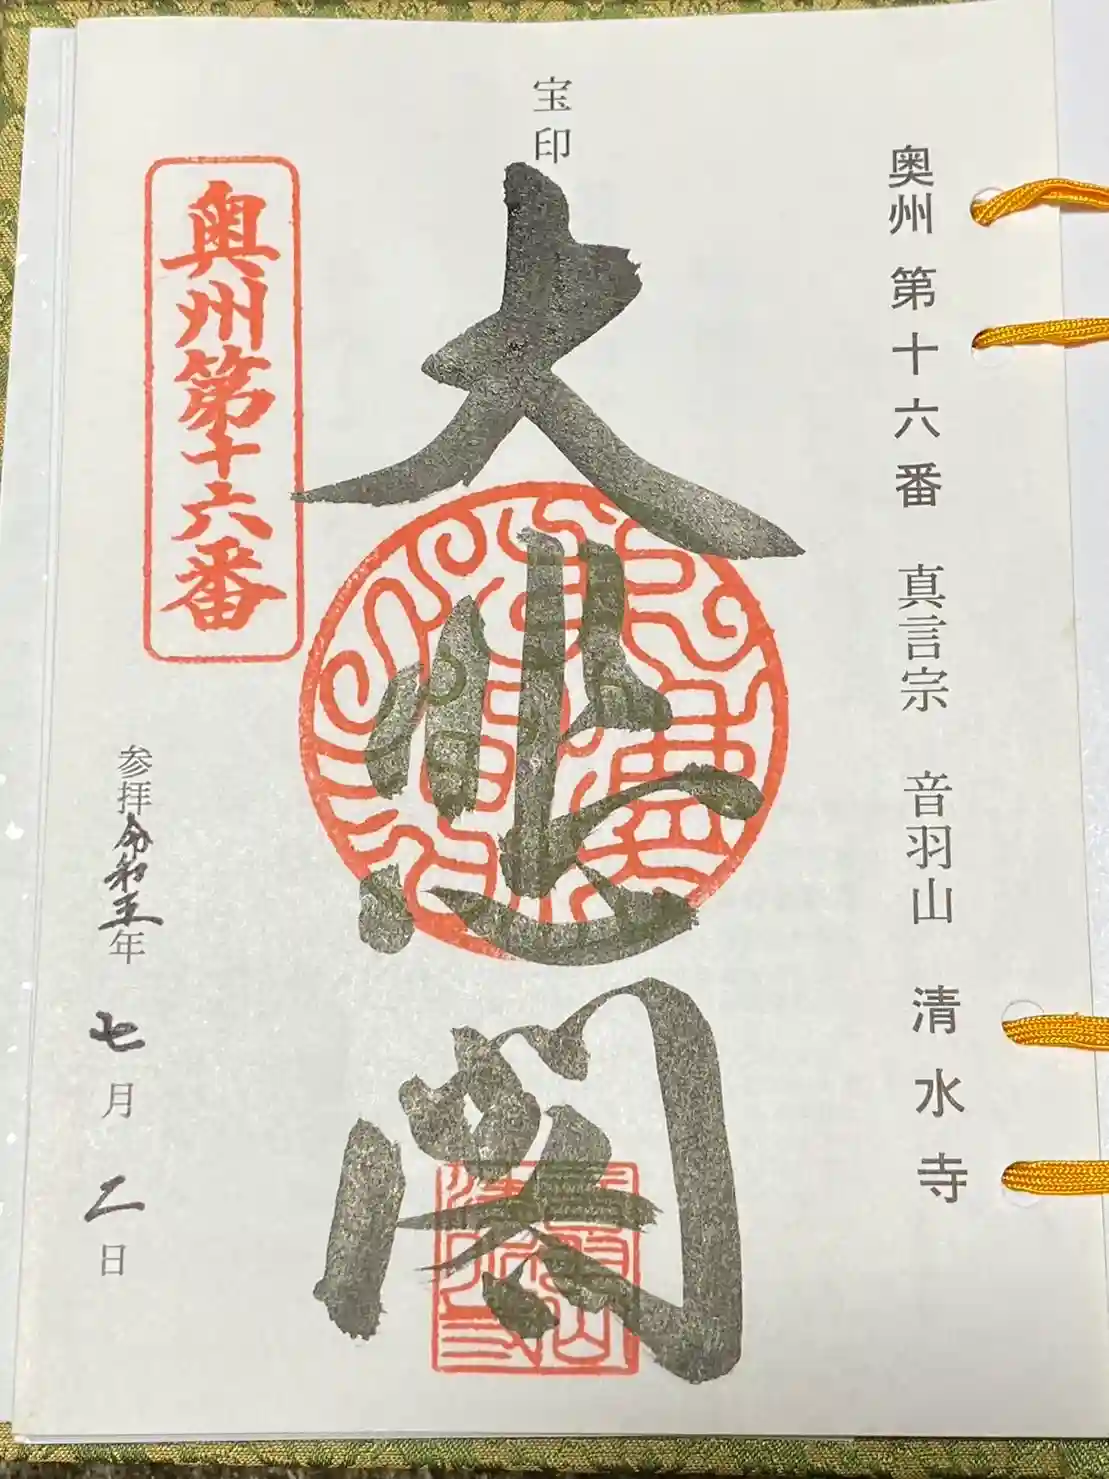 奥州 第十六番 真言宗 音羽山 清水寺
宝印
大悲閣
奥州第十六番
参拝令和五年 七月 二日